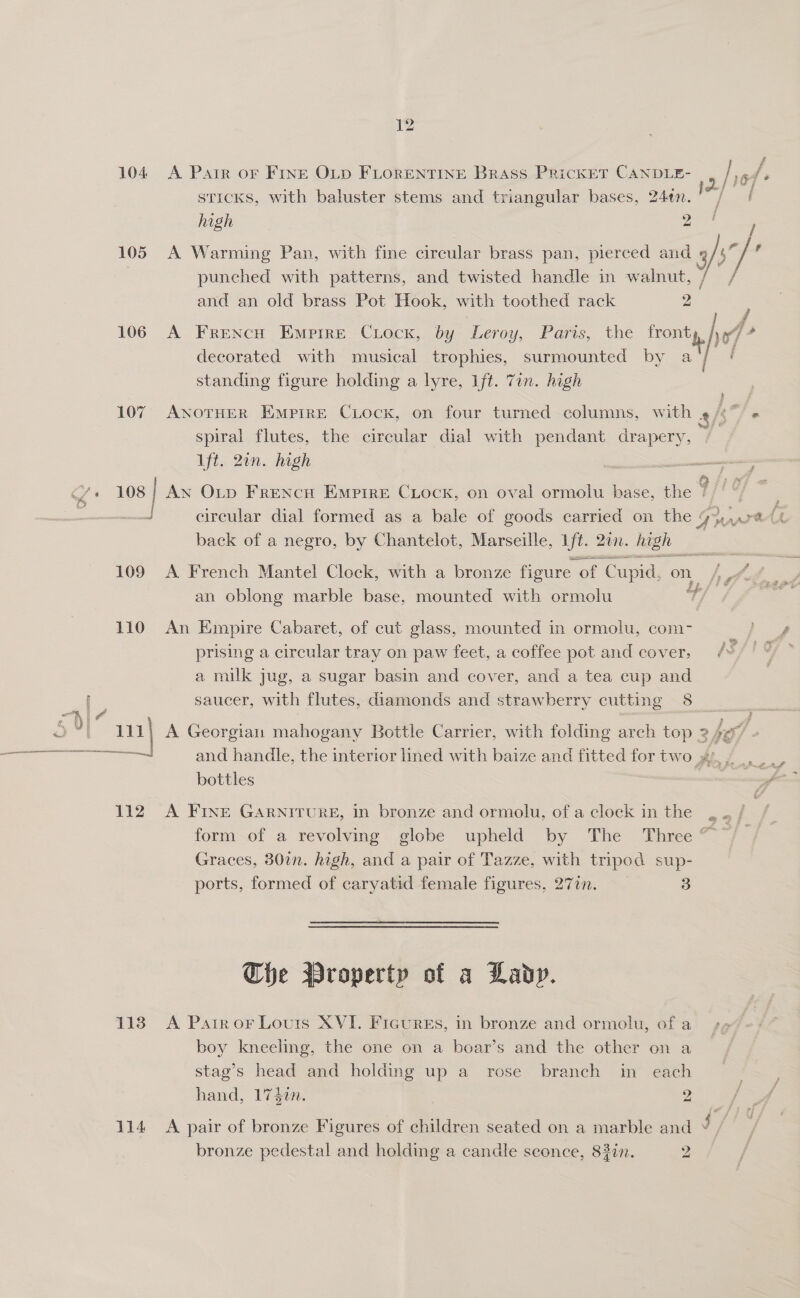 12
104 A PAIR OF FINE OLD FLORENTINE BRASS PRICKET CANDLE-
STICKS, with baluster stems and triangular bases, 24in.
high 2
105 A Warming Pan, with fine circular brass pan, pierced and
punched with patterns, and twisted handle in walnut,
and an old brass Pot Hook, with toothed rack 2
106 A FRENCH EMPIRE CLOCK, by Leroy, Paris, the front
decorated with musical trophies, surmounted by a
standing figure holding a lyre, 1ft. 7in. high
107 ANOTHER EMPIRE CLOCK, on four turned columns, with
spiral flutes, the circular dial with pendant drapery,
1ft. 2in. high
108 AN OLD FRENCH EMPIRE CLOCK, on oval ormolu base, the
circular dial formed as a bale of goods carried on the
back of a negro, by Chantelot, Marseille, 1ft. 2in. high
109 A French Mantel Clock, with a bronze figure of Cupid, on
an oblong marble base, mounted with ormolu
110 An Empire Cabaret, of cut glass, mounted in ormolu, com-
prising a circular tray on paw feet, a coffee pot and cover,
a milk jug, a sugar basin and cover, and a tea cup and
saucer, with flutes, diamonds and strawberry cutting 8
111 A Georgian mahogany Bottle Carrier, with folding arch top
and handle, the interior lined with baize and fitted for two
bottles
112 A FINE GARNITURE, in bronze and ormolu, of a clock in the
form of a revolving globe upheld by The Three
Graces, 30in. high, and a pair of Tazze, with tripod sup-
ports, formed of caryatid female figures, 27in. 3
The Property of a Lady.
113 A PAIR OF LOUIS XVI. FIGURES, in bronze and ormolu, of a
boy kneeling, the one on a boar's and the other on a
stag's head and holding up a rose branch in each
hand, 17½in. 2
114 A pair of bronze Figures of children seated on a marble and
bronze pedestal and holding a candle sconce, 8¾in. 2